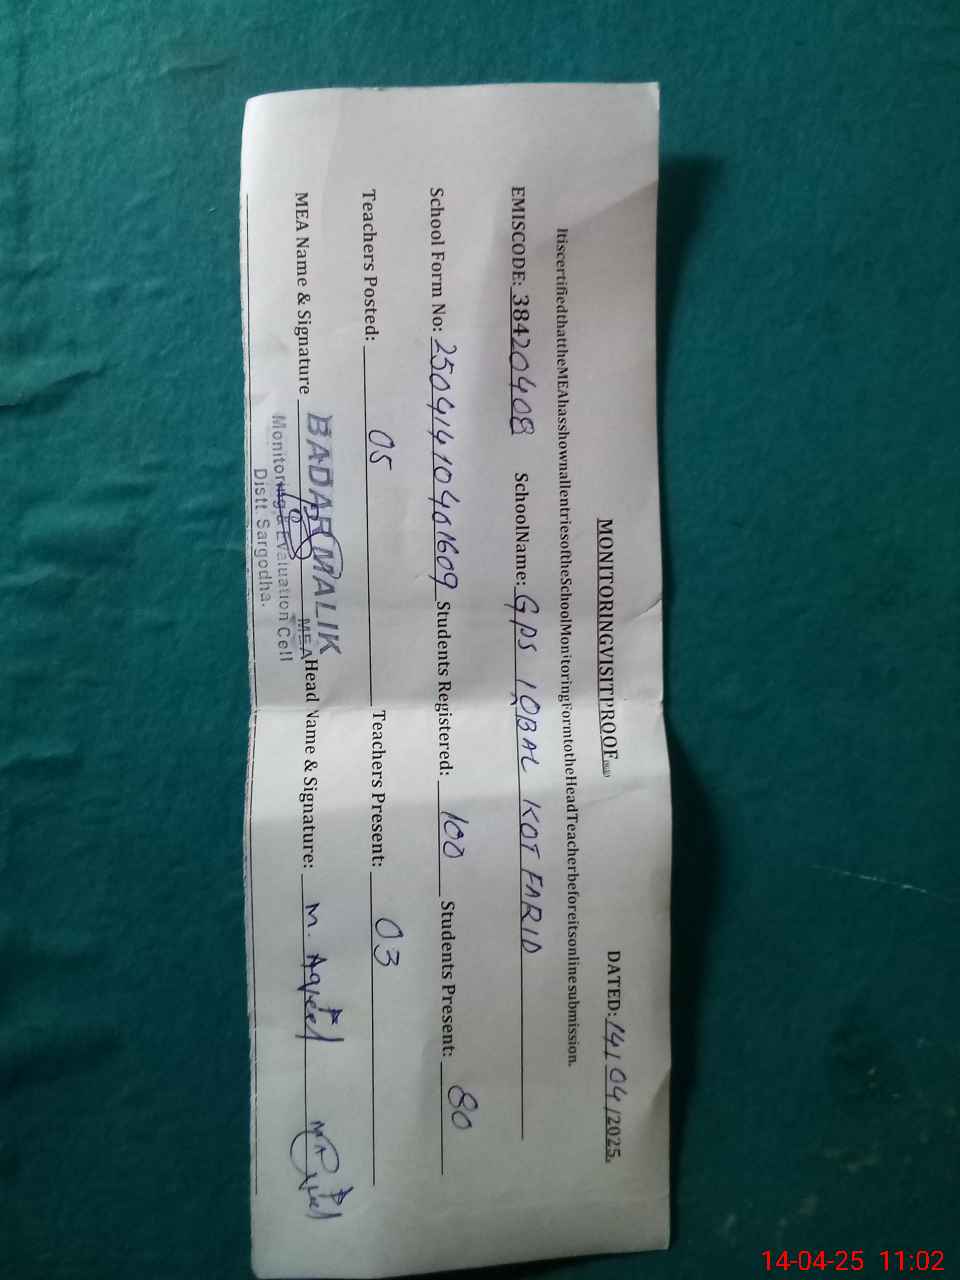 MONITORINGVISITPROOF
DATED: 14/04/2025.
ItiscertifiedthattheMEAhasshownallentriesoftheSchoolMonitoringFormtotheHeadTeacherbeforeitsonlinesubmission.
EMISCODE: 38420408 SchoolName: GPS IQBAL KOT FARID
School Form No: 25041410401609 Students Registered: 100 Students Present: 80
Teachers Posted: 05 Teachers Present: 03
MEA Name & Signature BADAR MALIK Head Name & Signature: M. Aqeel
MEA
Monitoring & Evaluation Cell
Distt. Sargodha.
14-04-25 11:02